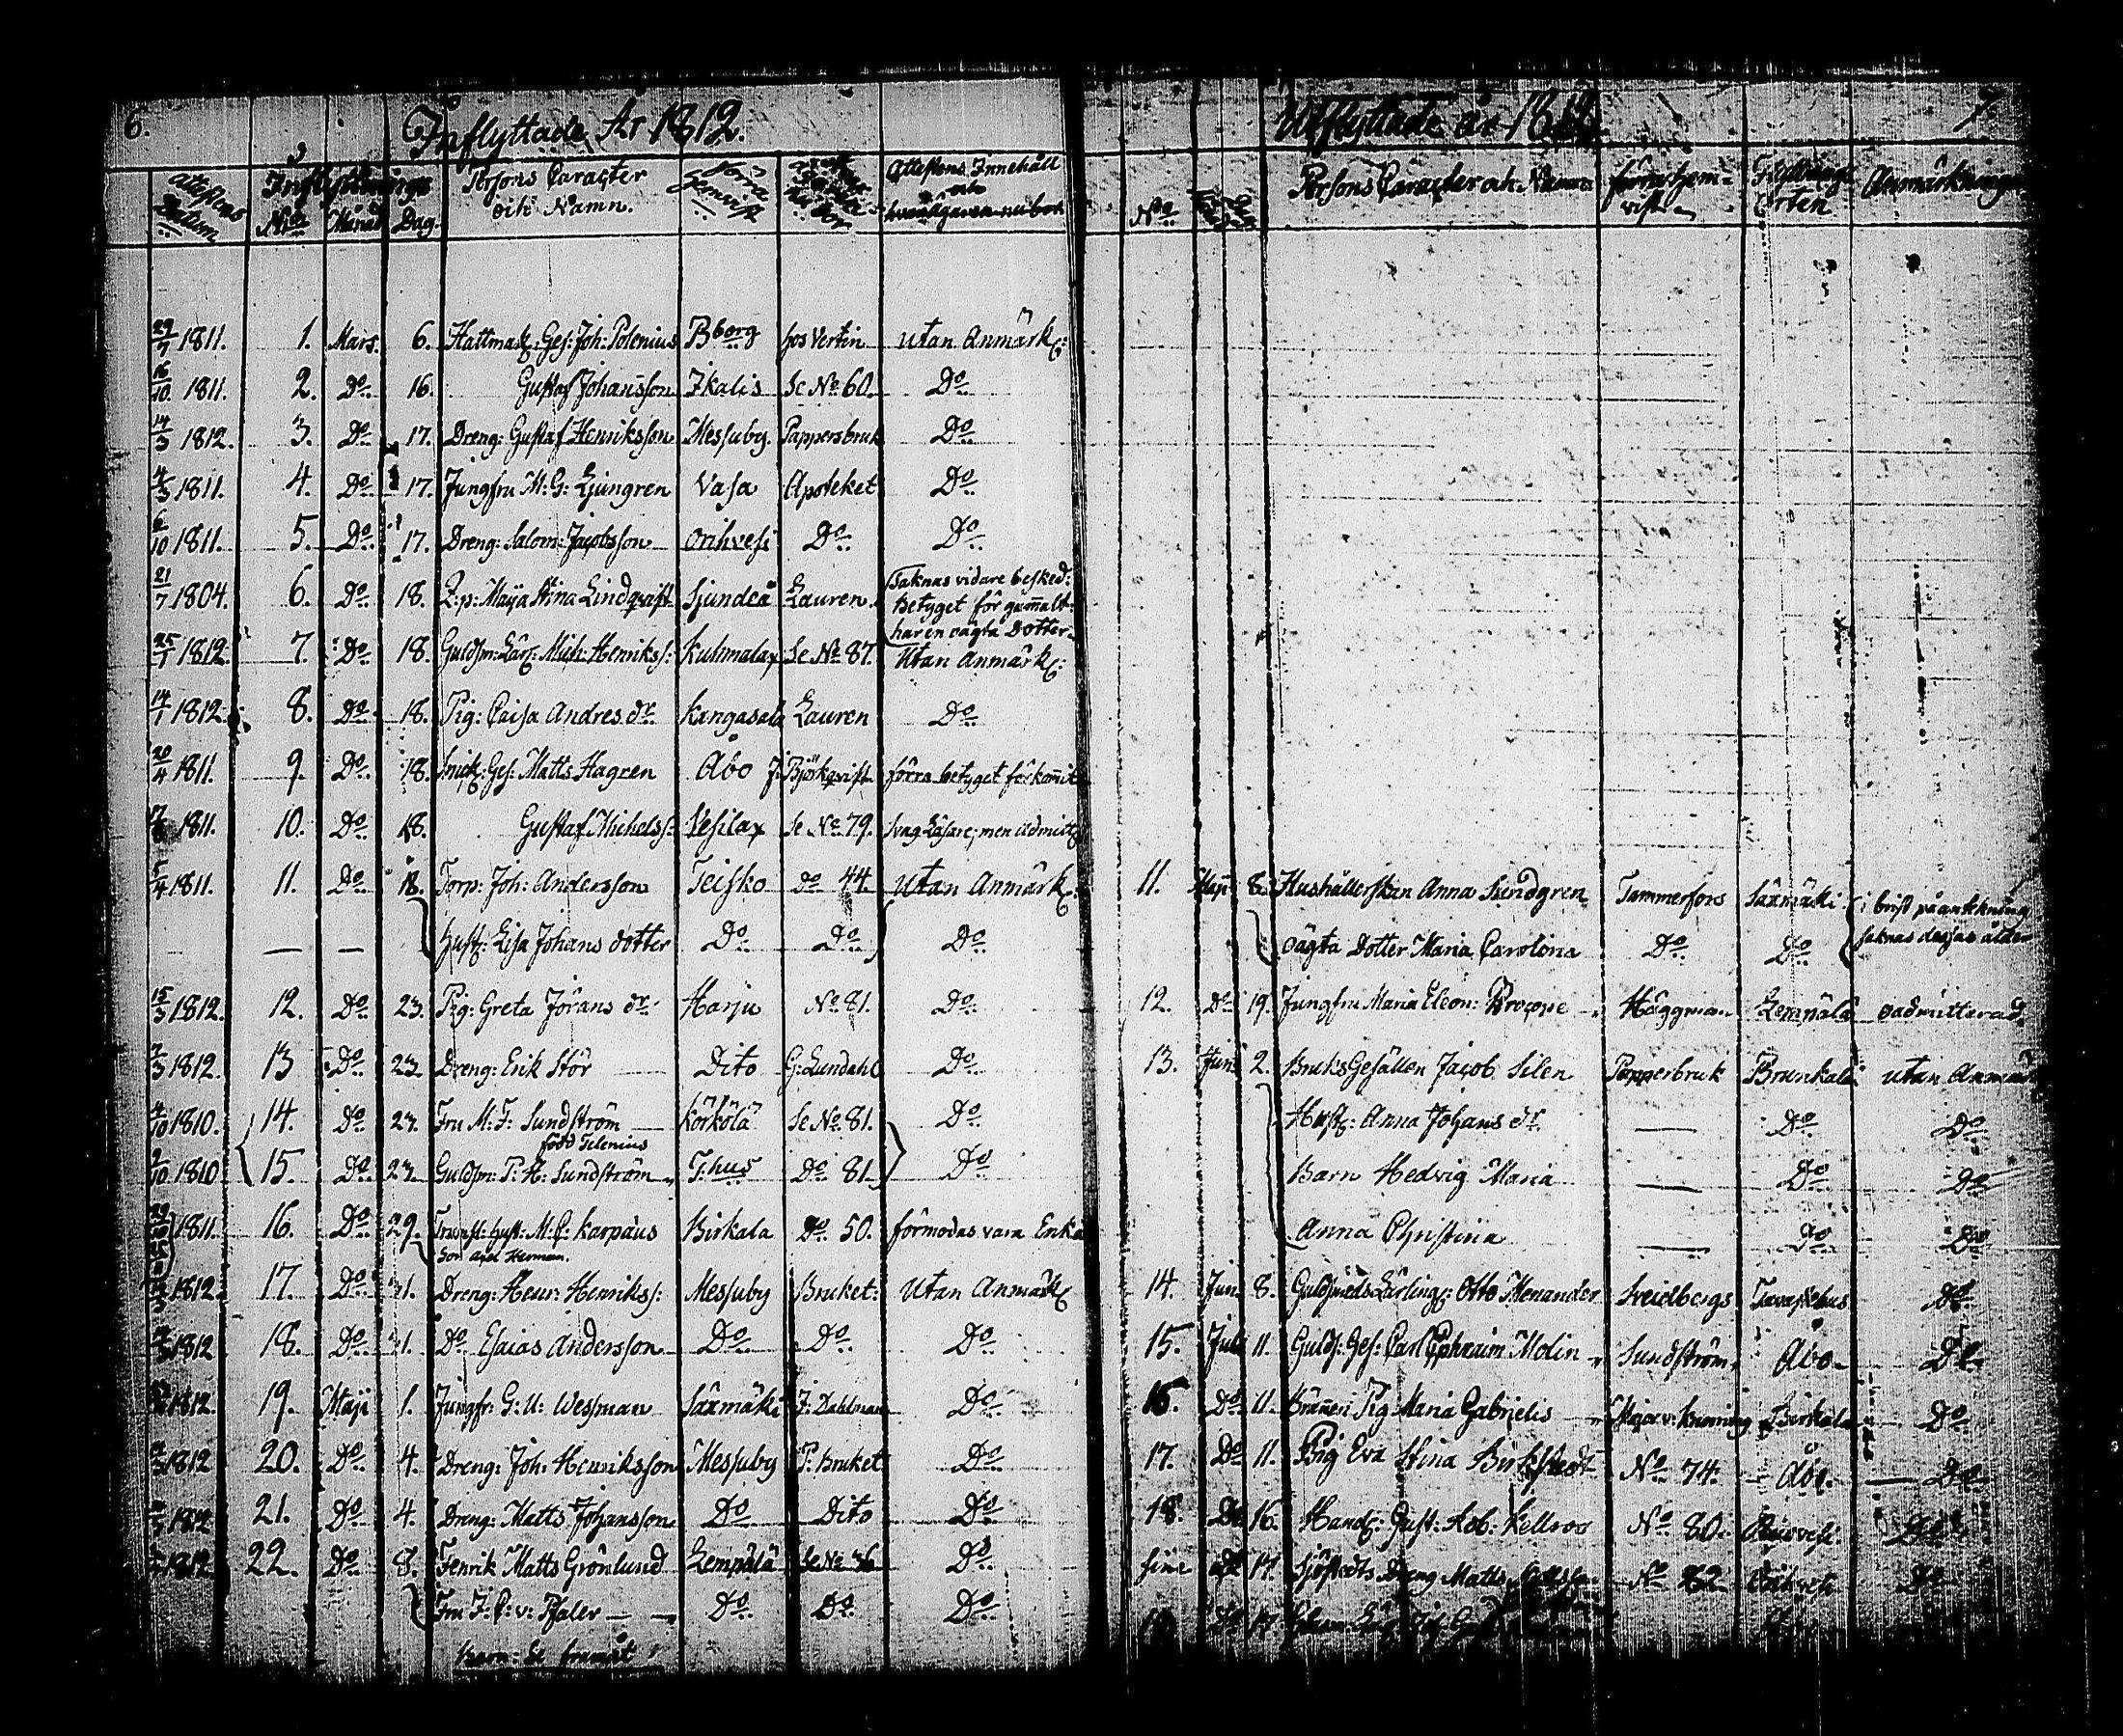 6.
Inflyttade År 1812.
attestens Datum
Inflyttnings
N:o Månad Dag.
Persons Caracter och Namn.
förra hemvist
Attestens Innehåll och
29/7 1811. 1. Mars. 6. Hattmak: Ges: Joh: Polenius Bborg hos Vertin utan Anmärk:
16/10 1811. 2. Do 16. Gustaf Johansson Ikalis Se No 60. Do
14/3 1812. 3. Do 17. Dreng: Gustaf Henriksson Messuby Pappersbruk Do
4/3 1811. 4. Do 17. Jungfru M: G: Ljungren Vasa Apoteket Do
6/10 1811. 5. Do 17. Dreng: Salom: Jacobsson Orihvesi Do Do
21/7 1804. 6. Do 18. Maja Stina Lindqvist Sjundeå Lauren Saknas vidare besked:
Betyget för gammalt:
har en oägta Dotter.
25/1 1812. 7. Do 18. Guldsm: Lär: Mich: Henrikss: Kuhmalax Se No 87. Utan Anmärk:
14/1 1812. 8. Do 18. Pig: Caisa Andres dr Kangasala Lauren Do
20/4 1811. 9. Do 18. Snick: Ges: Matts Hagren Åbo J: Björkqvist förra betyget förkommit
1811. 10. Do 18. Gustaf Michelss: Vesilax Se No 79. Svag Läsare; men admitt:
5/4 1811. 11. Do 18. Torp: Joh: Andersson Teisko Do 44 Utan Anmärk:
— — Hust: Lisa Johans dotter Do Do Do
15/3 1812. 12. Do 23. Pig: Greta Jörans dr Harju No 81. Do
7/3 1812. 13 Do 23. Dreng: Erik Stör Dito G: Lundahl Do
4/10 1810. 14. Do 23. Fru M: F: Sundström Körkölä Se No 81. Do
född Telenius
2/10 1810 15. Do 23. Guldsm: P: H: Sundström T:hus Do 81. Do
1811. 16. Do 29. Hust: M: C: Karpäus Birkala Do 50. förmodas vara Enka
Son Axel Herman.
1812. 17. Do 31. Dreng: Henr: Henrikss: Messuby Bruket: Utan Anmärk:
1812 18. Do 31. Do Esaias Andersson Do Do Do
1812. 19. Maji 1. Jungfr: G: U: Wesman Säxmäki J: Dahlman Do
1812 20. Do 4. Dreng: Joh: Henriksson Messuby P: Bruket Do
1812 21. Do 4. Dreng: Matts Johansson Do Dito Do
1812 22. Do 8. Fenrik Matts Grönlund Lempälä Se No 36 Do
Fru J: C: v: Pfaler — Do Do Do
Barn: Se framåt
7.
Utflyttade år 1812.
No
Persons Caracter och Namn
förra hemvist
orten
Anmärkningar
11. Maji 8. Hushållerskan Anna Sundgren Tammerfors Säxmäki i brist på anteckning
oägta Dotter Maria Carolina Do Do saknas deras ålder
12. Do 19. Jungfru Maria Eleon: Procopé Häggman Lempälä oadmitterad.
13. Juni 2. BruksGesällen Jacob Silen Papperbruk Brunkala utan Anmärk
Hust: Anna Johans dr. — Do Do
Barn Hedvig Maria — Do Do
Anna Christina — Do Do
14. Jun. 8. GuldsmedsLärling: Otto Menander Sveidbergs Tavastehus Do
15. Juli 11. Gulds: Ges: Carl Ephraim Molin Sundström Åbo Do
16. Do 11. Pig Maria Gabrielis Major v: Knorring Birkala Do
17. Do 11. Pig Eva Stina No 74. Åbo. Do
18. Do 16. Handl: Gust: Ad: Hellroo No 80. Do
Do 17. Dreng Matts No 82 Orihvesi Do